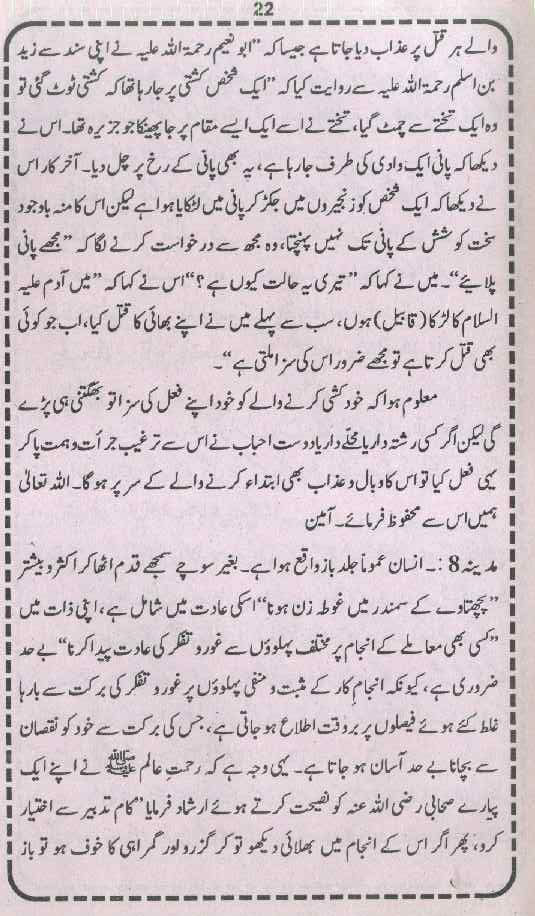 22
والے ہر قتل پر عذاب دیا جاتا ہے جیسا کہ ”ابو نعیم رحمۃ اللہ علیہ نے اپنی سند سے زید
بن اسلم رحمۃ اللہ علیہ سے روایت کیا کہ ”ایک شخص کشتی پر جا رہا تھا کہ کشتی ٹوٹ گئی تو
وہ ایک تختے سے چمٹ گیا، تختے نے اسے ایک ایسے مقام پر جا پھینکا جو جزیرہ تھا۔ اس نے
دیکھا کہ پانی ایک وادی کی طرف جا رہا ہے، یہ بھی پانی کے رخ پر چل دیا۔ آخر کار اس
نے دیکھا کہ ایک شخص کو زنجیروں میں جکڑ کر پانی میں لٹکایا ہوا ہے لیکن اس کا منہ باوجود
سخت کوشش کے پانی تک نہیں پہنچتا، وہ مجھ سے درخواست کرنے لگا کہ ”مجھے پانی
پلائیے“۔ میں نے کہا کہ ”تیری یہ حالت کیوں ہے؟“ اس نے کہا کہ ”میں آدم علیہ
السلام کا لڑکا (قابیل) ہوں، سب سے پہلے میں نے اپنے بھائی کا قتل کیا، اب جو کوئی
بھی قتل کرتا ہے تو مجھے ضرور اس کی سزا ملتی ہے“۔
معلوم ہوا کہ خودکشی کرنے والے کو خود اپنے فعل کی سزا تو بھگتنی ہی پڑے
گی لیکن اگر کسی رشتہ دار یا محلّے دار یا دوست احباب نے اس سے ترغیب جرأت و ہمت پا کر
یہی فعل کیا تو اس کا وبال و عذاب بھی ابتداء کرنے والے کے سر پر ہوگا۔ اللہ تعالیٰ
ہمیں اس سے محفوظ فرمائے۔ آمین
مدینہ 8 :۔ انسان عموماً جلد باز واقع ہوا ہے۔ بغیر سوچے سمجھے قدم اٹھا کر اکثر و بیشتر
”پچھتاوے کے سمندر میں غوطہ زن ہونا“ اسکی عادت میں شامل ہے، اپنی ذات میں
”کسی بھی معاملے کے انجام پر مختلف پہلوؤں سے غور و تفکر کی عادت پیدا کرنا“ بے حد
ضروری ہے، کیونکہ انجامِ کار کے مثبت و منفی پہلوؤں پر غور و تفکر کی برکت سے بارہا
غلط کئے ہوئے فیصلوں پر بروقت اطلاع ہو جاتی ہے، جس کی برکت سے خود کو نقصان
سے بچانا بے حد آسان ہو جاتا ہے۔ یہی وجہ ہے کہ رحمتِ عالم ﷺ نے اپنے ایک
پیارے صحابی رضی اللہ عنہ کو نصیحت کرتے ہوئے ارشاد فرمایا ”کام تدبیر سے اختیار
کرو، پھر اگر اس کے انجام میں بھلائی دیکھو تو کر گزرو اور گمراہی کا خوف ہو تو باز